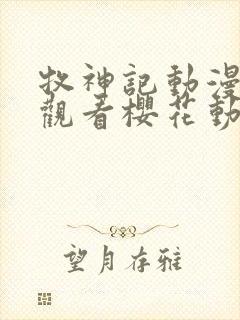 牧神記動漫
觀看櫻花動
望月存雅